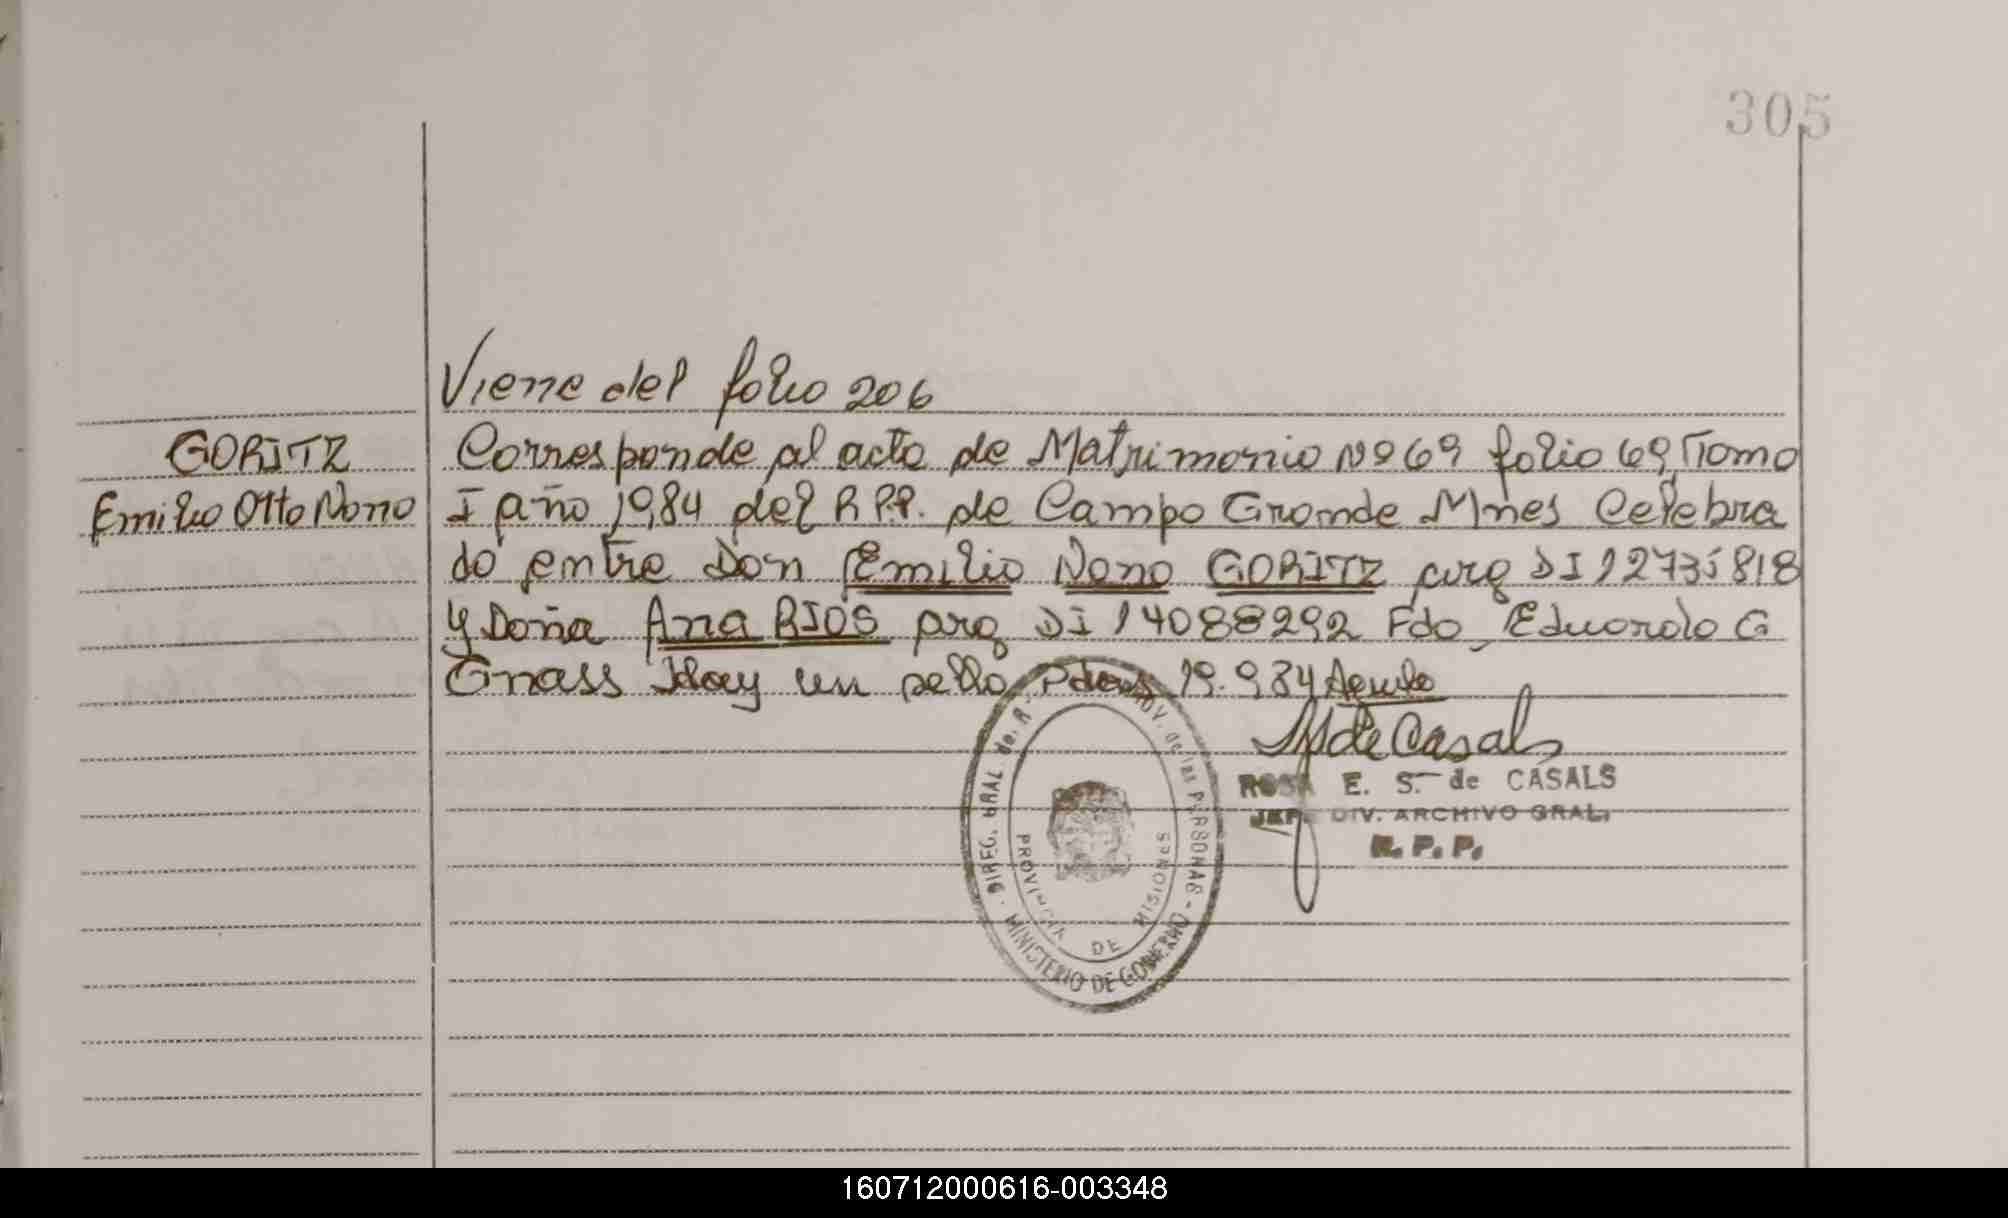 305
Viene del folio 206
GORITZ
Emilio Otto Nono
Corresponde al acta de Matrimonio Nº 69 folio 69 Tomo
I año 1984 del R.P.P. de Campo Grande Mnes Celebra
do entre Don Emilio Nono GORITZ arg DI 12735818
y Doña Ana RIOS arg DI 14088292 Fdo, Eduardo G
Gnass Hay un sello Pdas 19.984
MdeCasals
ROSA E. S. de CASALS
JEFE DIV. ARCHIVO GRAL.
R. P. P.
DIREC. GRAL de. R PROV. de las PERSONAS - MINISTERIO DE GOBIERNO -
PROVINCIA DE MISIONES
160712000616-003348